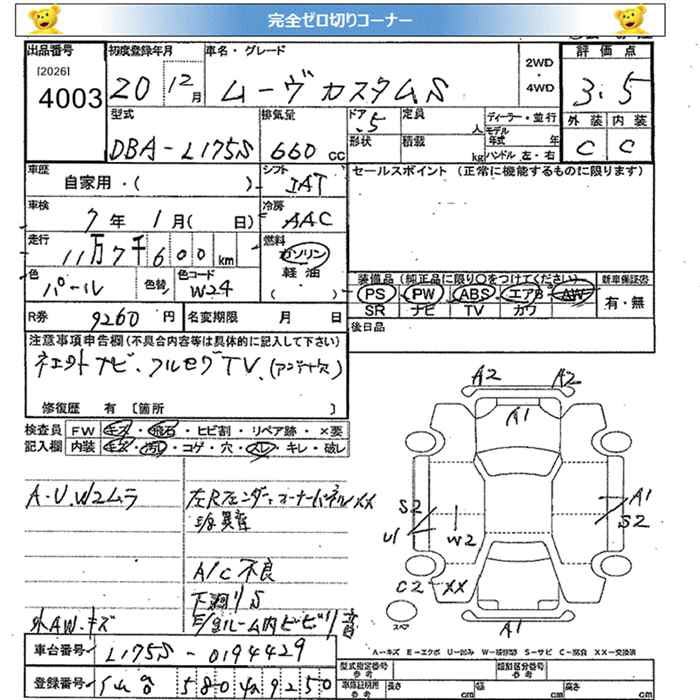 完全ゼロ切りコーナー
出品番号 初度登録年月 車名・グレード 評価点
[2026]
4003 20 12月 ムーヴカスタムS 2WD・4WD 3.5
型式 排気量 ドア 定員 ディーラー・並行 外装 内装
DBA-L175S 660cc .5 人 モデル年式 年 C C
形状 積載 kg ハンドル 左・右
車歴 シフト セールスポイント (正常に機能するものに限ります)
自家用・( ) IAT
車検 冷房
7年 1月( 日) AAC
走行 燃料
11万7千600km ガソリン
軽油
色 色替 色コード ( )
パール W24
装備品 (純正品に限り〇をつけてください) 新車保証書
PS PW ABS エアB AW 有・無
SR ナビ TV カワ
R券 9260円 名変期限 月 日
後日品
注意事項申告欄(不具合内容等は具体的に記入して下さい)
ネクストナビ.フルセグTV.(アンテナ欠)
修復歴 有 [箇所 ]
検査員 FW キズ・飛石・ヒビ割・リペア跡・×要
記入欄 内装 キズ・汚れ・コゲ・穴・スレ・キレ・破レ
A2 A2
A1
A・U.W2ムラ
左Rフェンダーコーナーパネルxx
A1
S2 S2
U1 W2
A/C 不良
C2 XX
下廻りS
外AW.キズ
スペア
A1
A-キズ E-エクボ U-凹み W-補修跡 S-サビ C-腐食 XX-交換済
車台番号 L175S-0194429
型式指定番号 類別区分番号
参考 参考
登録番号 580 4a 9250
車庫証明用 長さ cm 幅 cm 高さ cm
参考